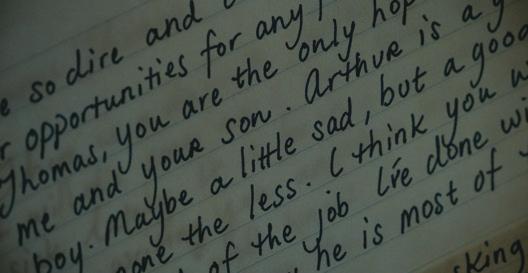 so dire and
opportunities for any
Thomas, you are the only hop
me and your son. Arthur is a g
boy. Maybe a little sad, but a good
one the less. I think you w
of the job I've done wi
he is most of
king